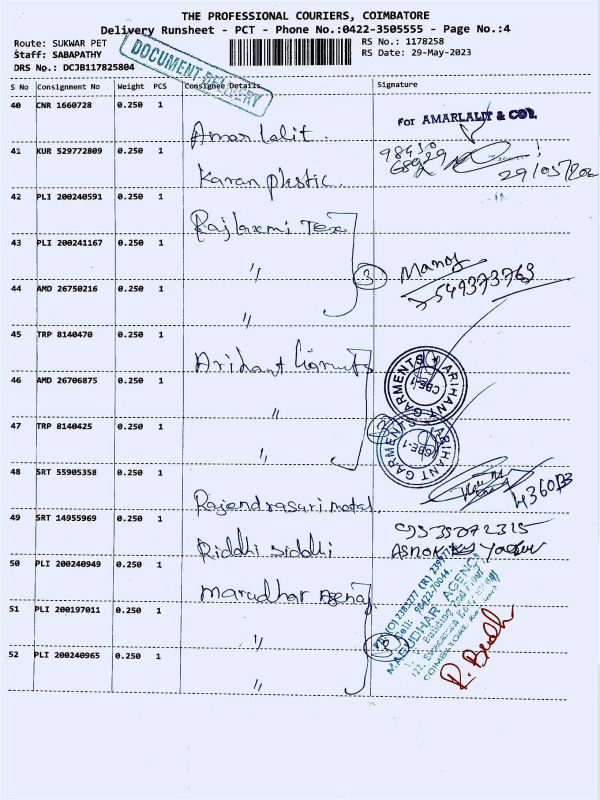 THE PROFESSIONAL COURIERS, COIMBATORE
Delivery Runsheet - PCT - Phone No.:0422-3505555 - Page No.:4
Route: SUKWAR PET
RS No.: 1178258
Staff: SABAPATHY
RS Date: 29-May-2023
DRS No.: DCJB117825804
DOCUMENT DELIVERY
S No Consignment No Weight PCS Consignee Details Signature
40 CNR 1660728 0.250 1 Amar lalit.
For AMARLALIT & CO.
41 KUR 529772809 0.250 1 Karan plastic.
98430
68929
42 PLI 200240591 0.250 1 Rajlaxmi Tex
43 PLI 200241167 0.250 1 "
3 Manoj
44 AMD 26750216 0.250 1 "
7549373763
45 TRP 8140470 0.250 1 Arihant
ARIHANT GARMENTS ★ CBE-1
46 AMD 26706875 0.250 1 "
47 TRP 8140425 0.250 1 "
ARIHANT GARMENTS ★ CBE-1
48 SRT 55905358 0.250 1 Rajendrasuri metal.
49 SRT 14955969 0.250 1 Riddhi siddhi
9535072315
50 PLI 200240949 0.250 1 Marudhar Agenaj
51 PLI 200197011 0.250 1 "
MARUDHAR AGENCY
52 PLI 200240965 0.250 1 "